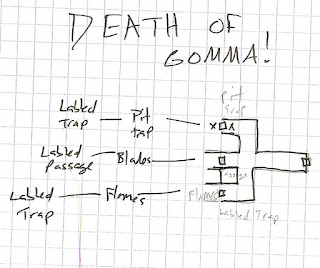 DEATH OF
GOMMA!
Pit
Trap
Labled
Trap
Pit
tap
x x
Labled
Passage
Blades
Labled
Trap
Flomes
Flames
Labled Trap